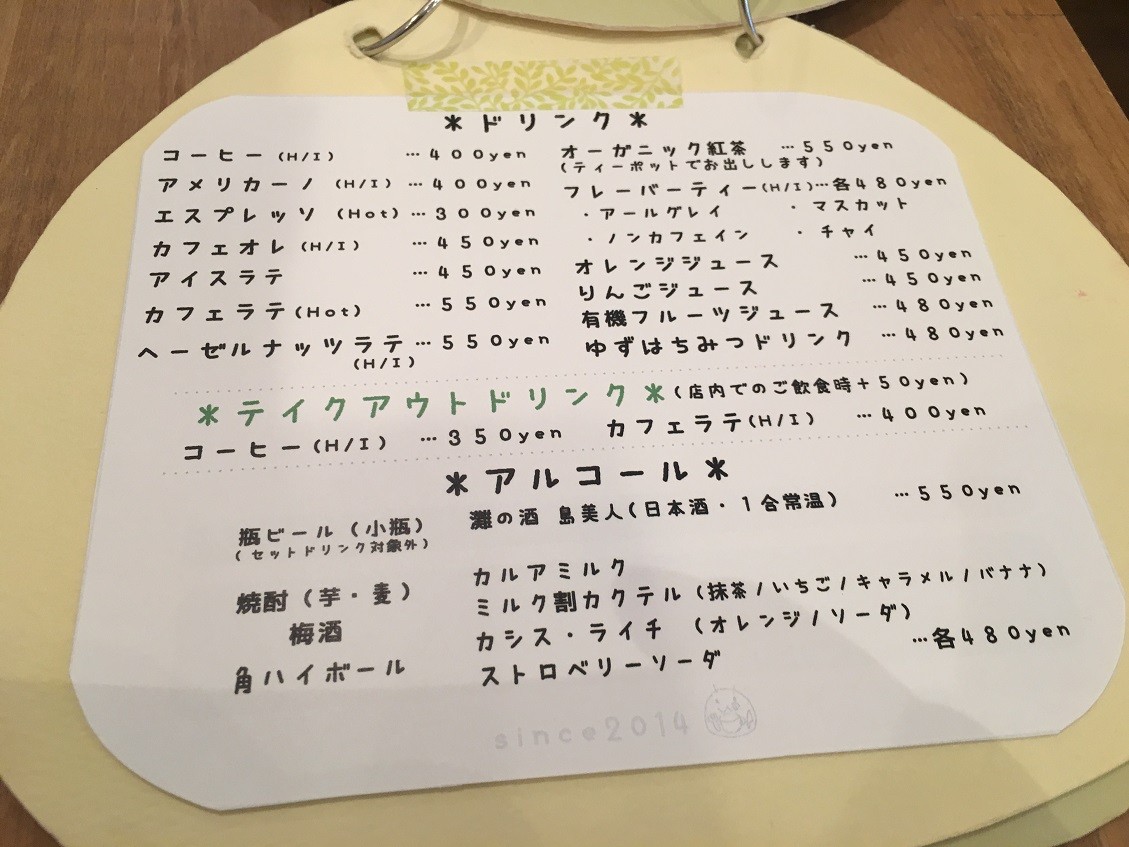 ＊ドリンク＊
コーヒー(H/I) …４００yen
アメリカーノ (H/I) …４００yen
エスプレッソ (Hot) …３００yen
カフェオレ(H/I) …４５０yen
アイスラテ …４５０yen
カフェラテ(Hot) …５５０yen
ヘーゼルナッツラテ …５５０yen
(H/I)
オーガニック紅茶 …５５０yen
(ティーポットでお出しします)
フレーバーティー(H/I)…各４８０yen
・アールグレイ ・マスカット
・ノンカフェイン ・チャイ
オレンジジュース …４５０yen
りんごジュース …４５０yen
有機フルーツジュース …４８０yen
ゆずはちみつドリンク …４８０yen
＊テイクアウトドリンク＊(店内でのご飲食時＋５０yen)
コーヒー(H/I) …３５０yen カフェラテ(H/I) …４００yen
＊アルコール＊
瓶ビール（小瓶）
(セットドリンク対象外)
焼酎（芋・麦）
梅酒
角ハイボール
灘の酒 島美人(日本酒・１合常温) …５５０yen
カルアミルク
ミルク割カクテル（抹茶/いちご/キャラメル/バナナ）
カシス・ライチ （オレンジ/ソーダ）
…各４８０yen
ストロベリーソーダ
since2014